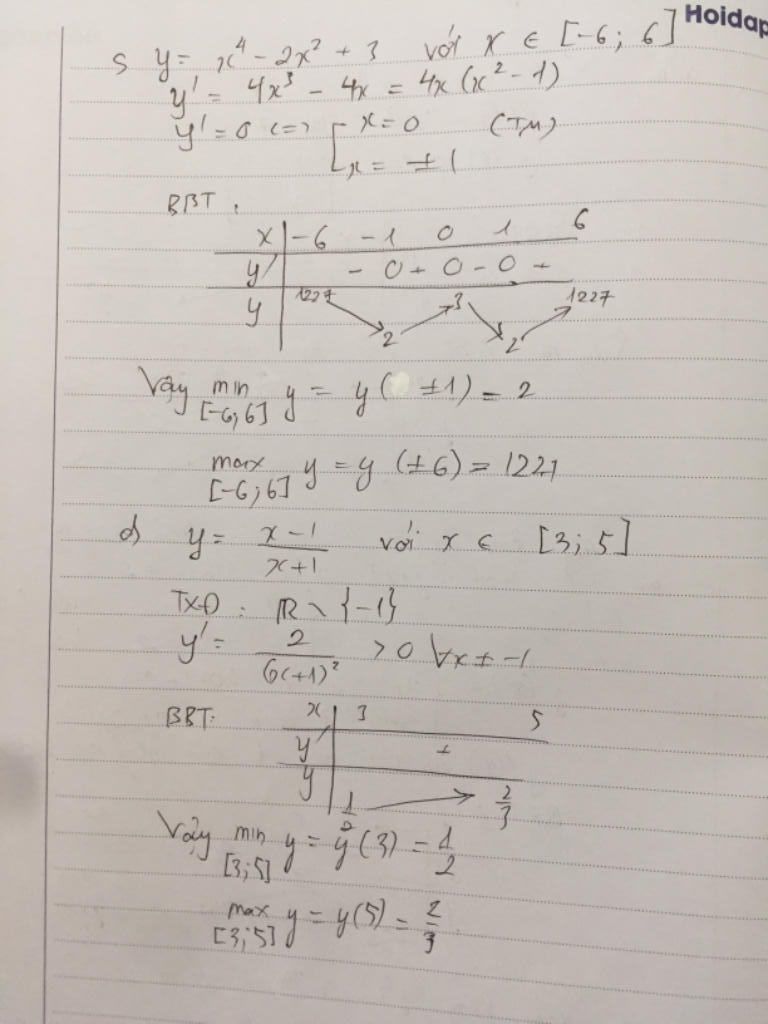 Hoidap
s y = x⁴ - 2x² + 3 với x ∈ [-6; 6]
y' = 4x³ - 4x = 4x (x² - 1)
y' = 0 <=> [ x = 0 (TM)
x = ±1
BBT:
x | -6 -1 0 1 6
y' | - 0 + 0 - 0 +
y | 1227 2 3 2 1227
Vậy min y = y( ±1) = 2
[-6; 6]
max y = y (±6) = 1227
[-6; 6]
d) y = (x - 1)/(x + 1) với x ∈ [3; 5]
TXĐ: ℝ \ {-1}
y' = 2/(x+1)² > 0 ∀x ≠ -1
BBT:
x | 3 5
y' | +
y | 1/2 2/3
Vậy min y = y(3) = 1/2
[3; 5]
max y = y(5) = 2/3
[3; 5]